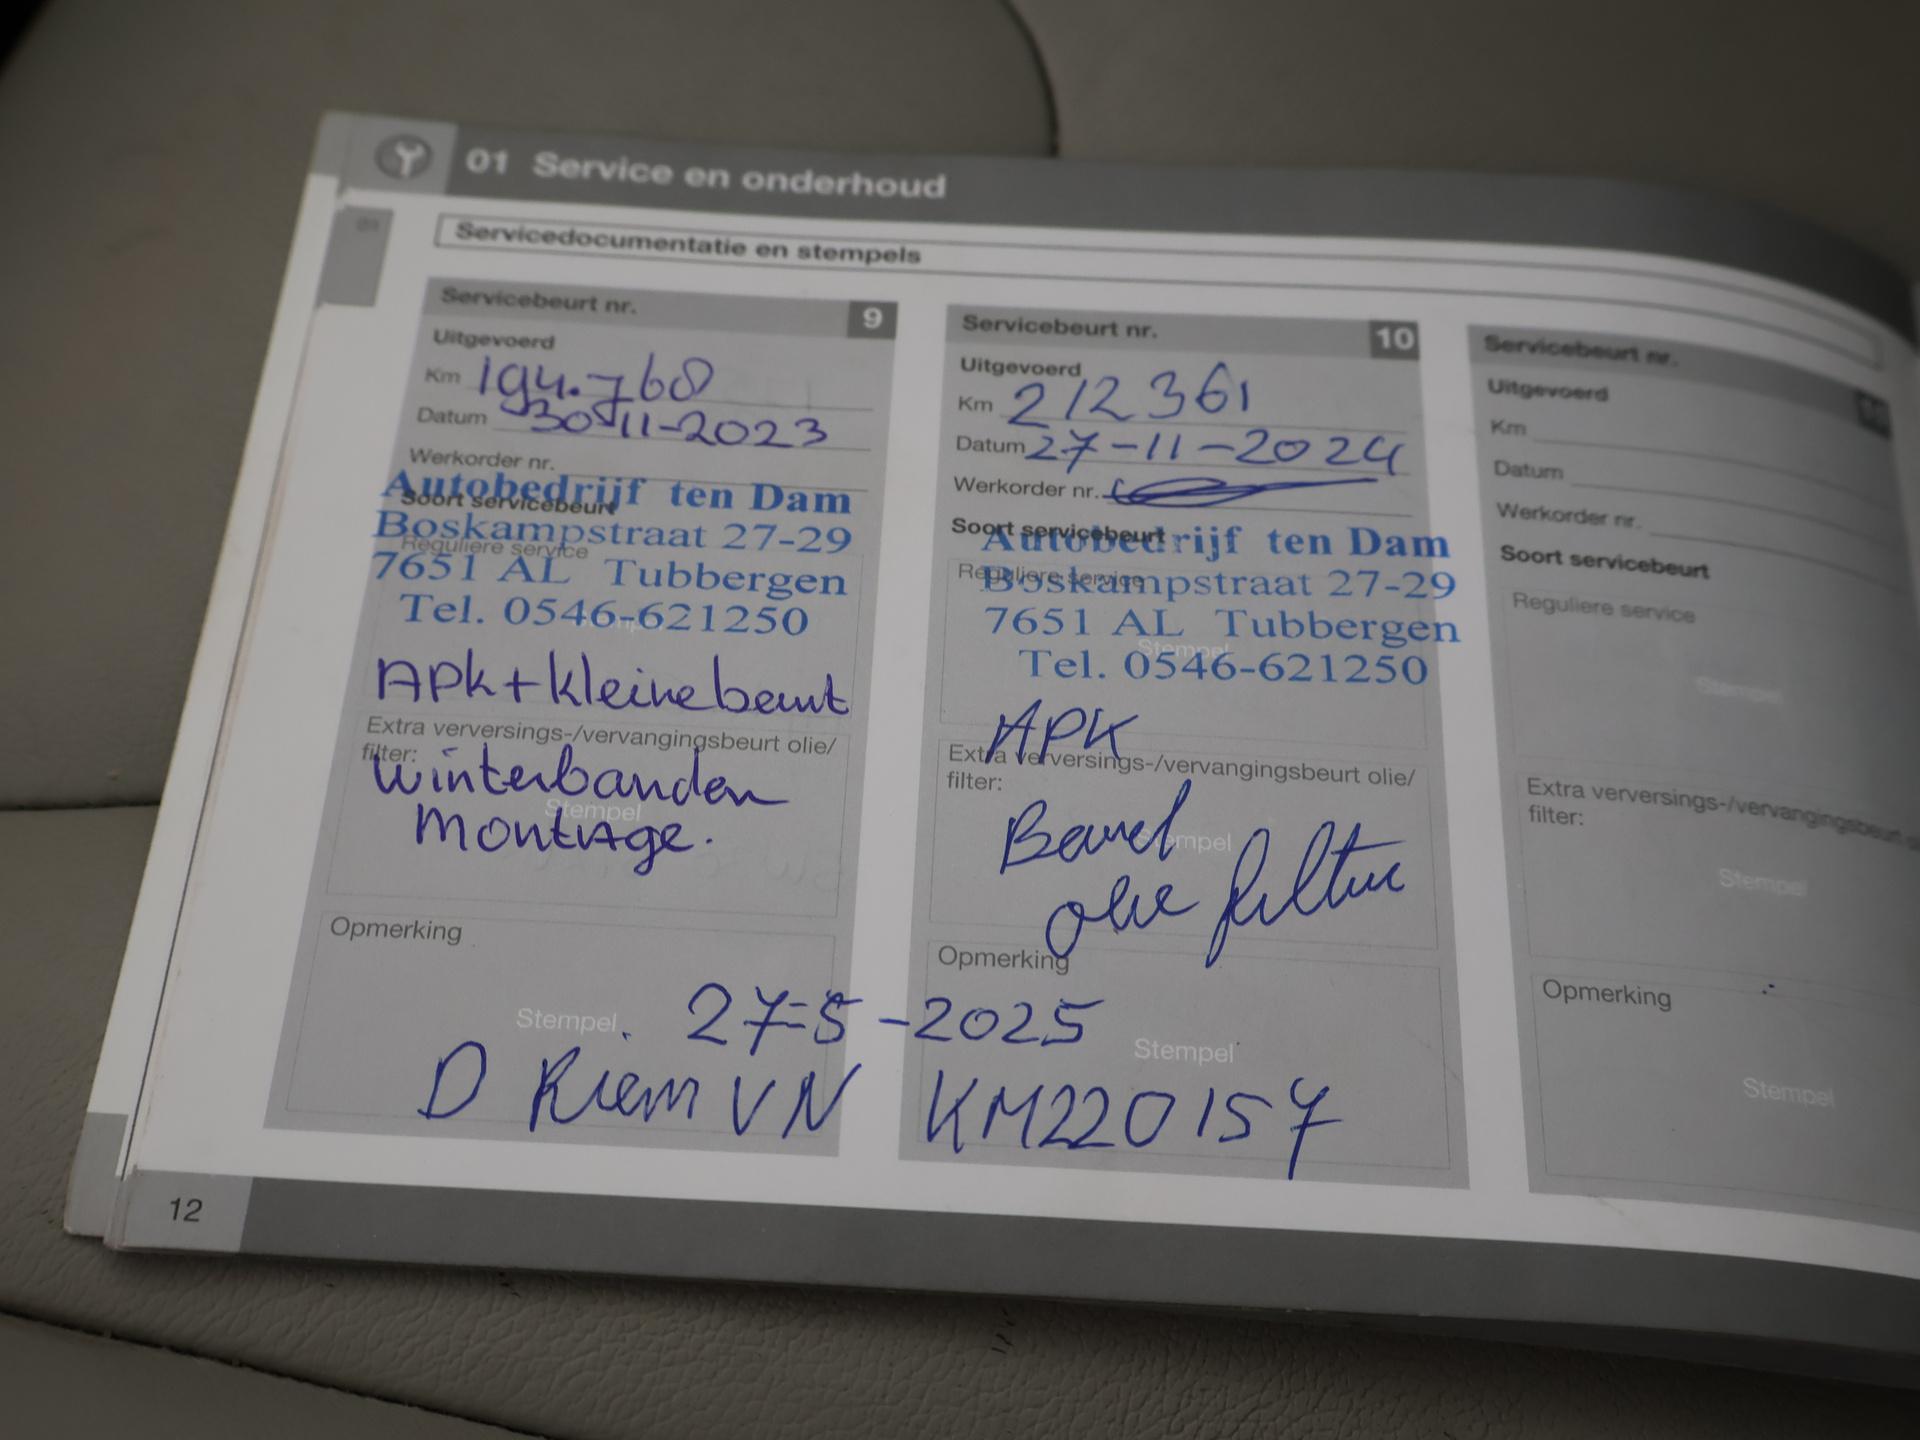 01 Service en onderhoud
01
Servicedocumentatie en stempels
Servicebeurt nr. 9
Uitgevoerd
Km 194.768
Datum 30-11-2023
Werkorder nr.
Soort servicebeurt
Reguliere service
Autobedrijf ten Dam
Boskampstraat 27-29
7651 AL Tubbergen
Tel. 0546-621250
Stempel
APK + kleine beurt
Extra verversings-/vervangingsbeurt olie/
filter:
winterbanden
Stempel
montage.
Opmerking
Stempel
Servicebeurt nr. 10
Uitgevoerd
Km 212361
Datum 27-11-2024
Werkorder nr.
Soort servicebeurt
Reguliere service
Autobedrijf ten Dam
Boskampstraat 27-29
7651 AL Tubbergen
Stempel
Tel. 0546-621250
APK
Extra verversings-/vervangingsbeurt olie/
filter:
Stempel
olie filter
Opmerking
Stempel
27-5-2025
D Riem VN KM220157
Servicebeurt nr.
Uitgevoerd
Km
Datum
Werkorder nr.
Soort servicebeurt
Reguliere service
Stempel
Extra verversings-/vervangingsbeurt
filter:
Stempel
Opmerking
Stempel
12